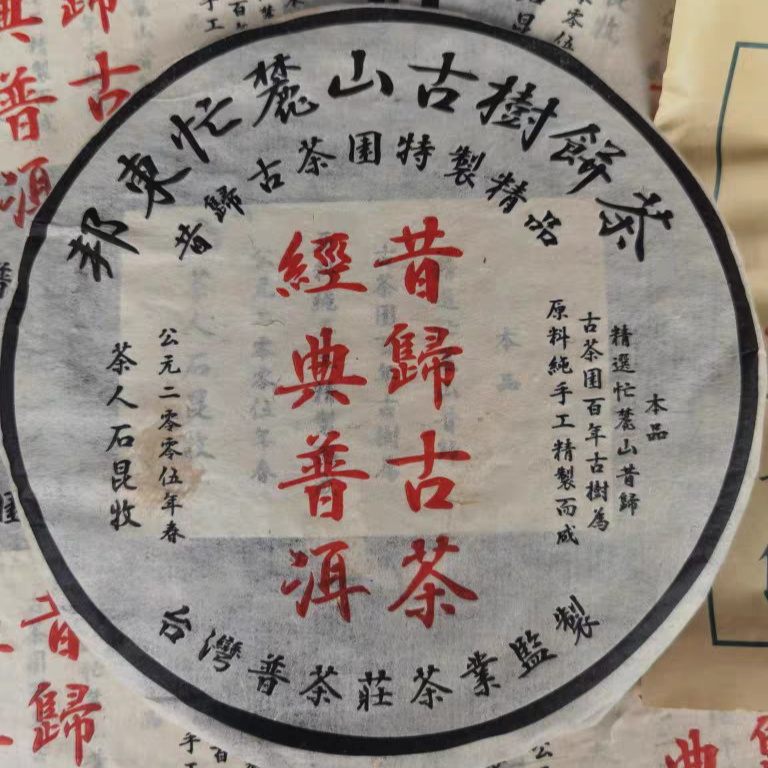 邦東忙麓山古樹餅茶
昔歸古茶園特製精品
昔歸古茶
經典普洱
本品
精選忙麓山昔歸
古茶園百年古樹為
原料純手工精製而成
公元二零零伍年春
茶人石昆牧
台灣普茶莊茶業監製